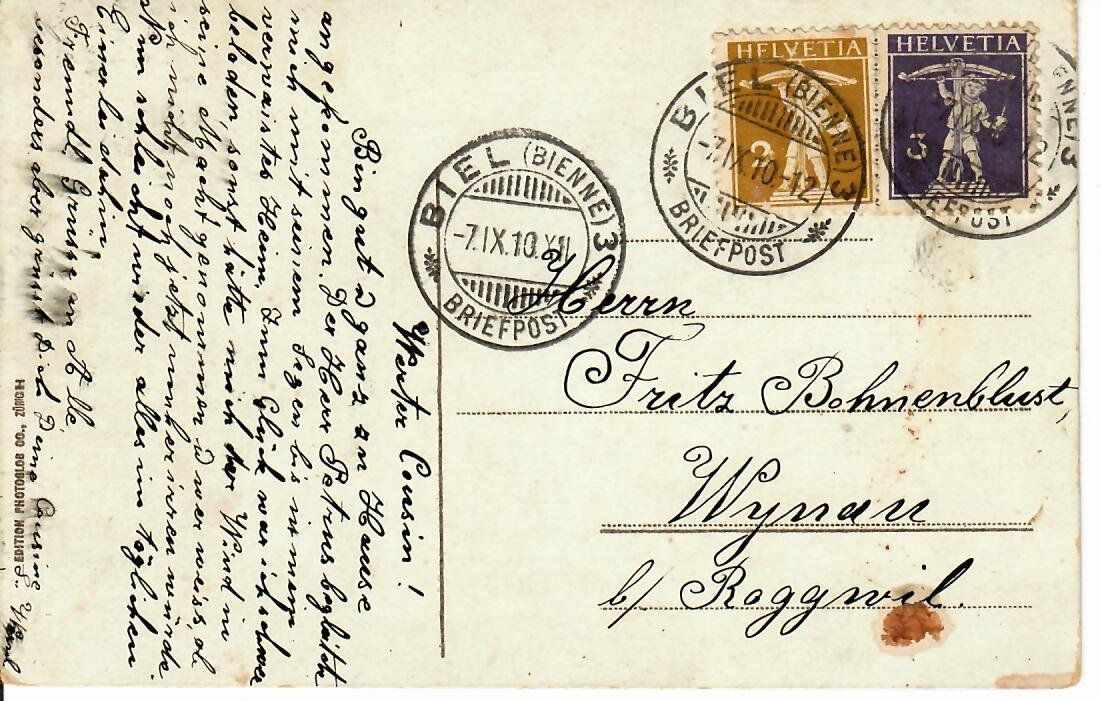 Werter Cousin!
Bin gut & ganz zu Hause
angekommen. Der Herr Petrus begleitete
mich mit seinem Segen bis in mein
verwaistes Heim. Zum Glück war ich schwer
beladen, sonst hätte mich der Wind in
seine Macht genommen & wer weiss, ob
ich nicht noch jetzt umherirren würde.
Nun schleicht wieder alles im täglichen
Einerlei dahin.
Freundl. Grüsse an Alle,
besonders aber grüsst Dich Deine Cousine
EDITION PHOTOGLOB CO., ZÜRICH
BIEL (BIENNE) 3
-7.IX.10.XII
BRIEFPOST
HELVETIA
2
HELVETIA
3
BIEL (BIENNE) 3
-7.IX.10.-12
BRIEFPOST
Herrn
Fritz Bohnenblust,
Wynau
b/ Roggwil.